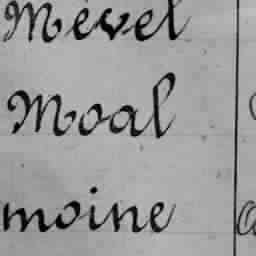 Mével
Moal
moine